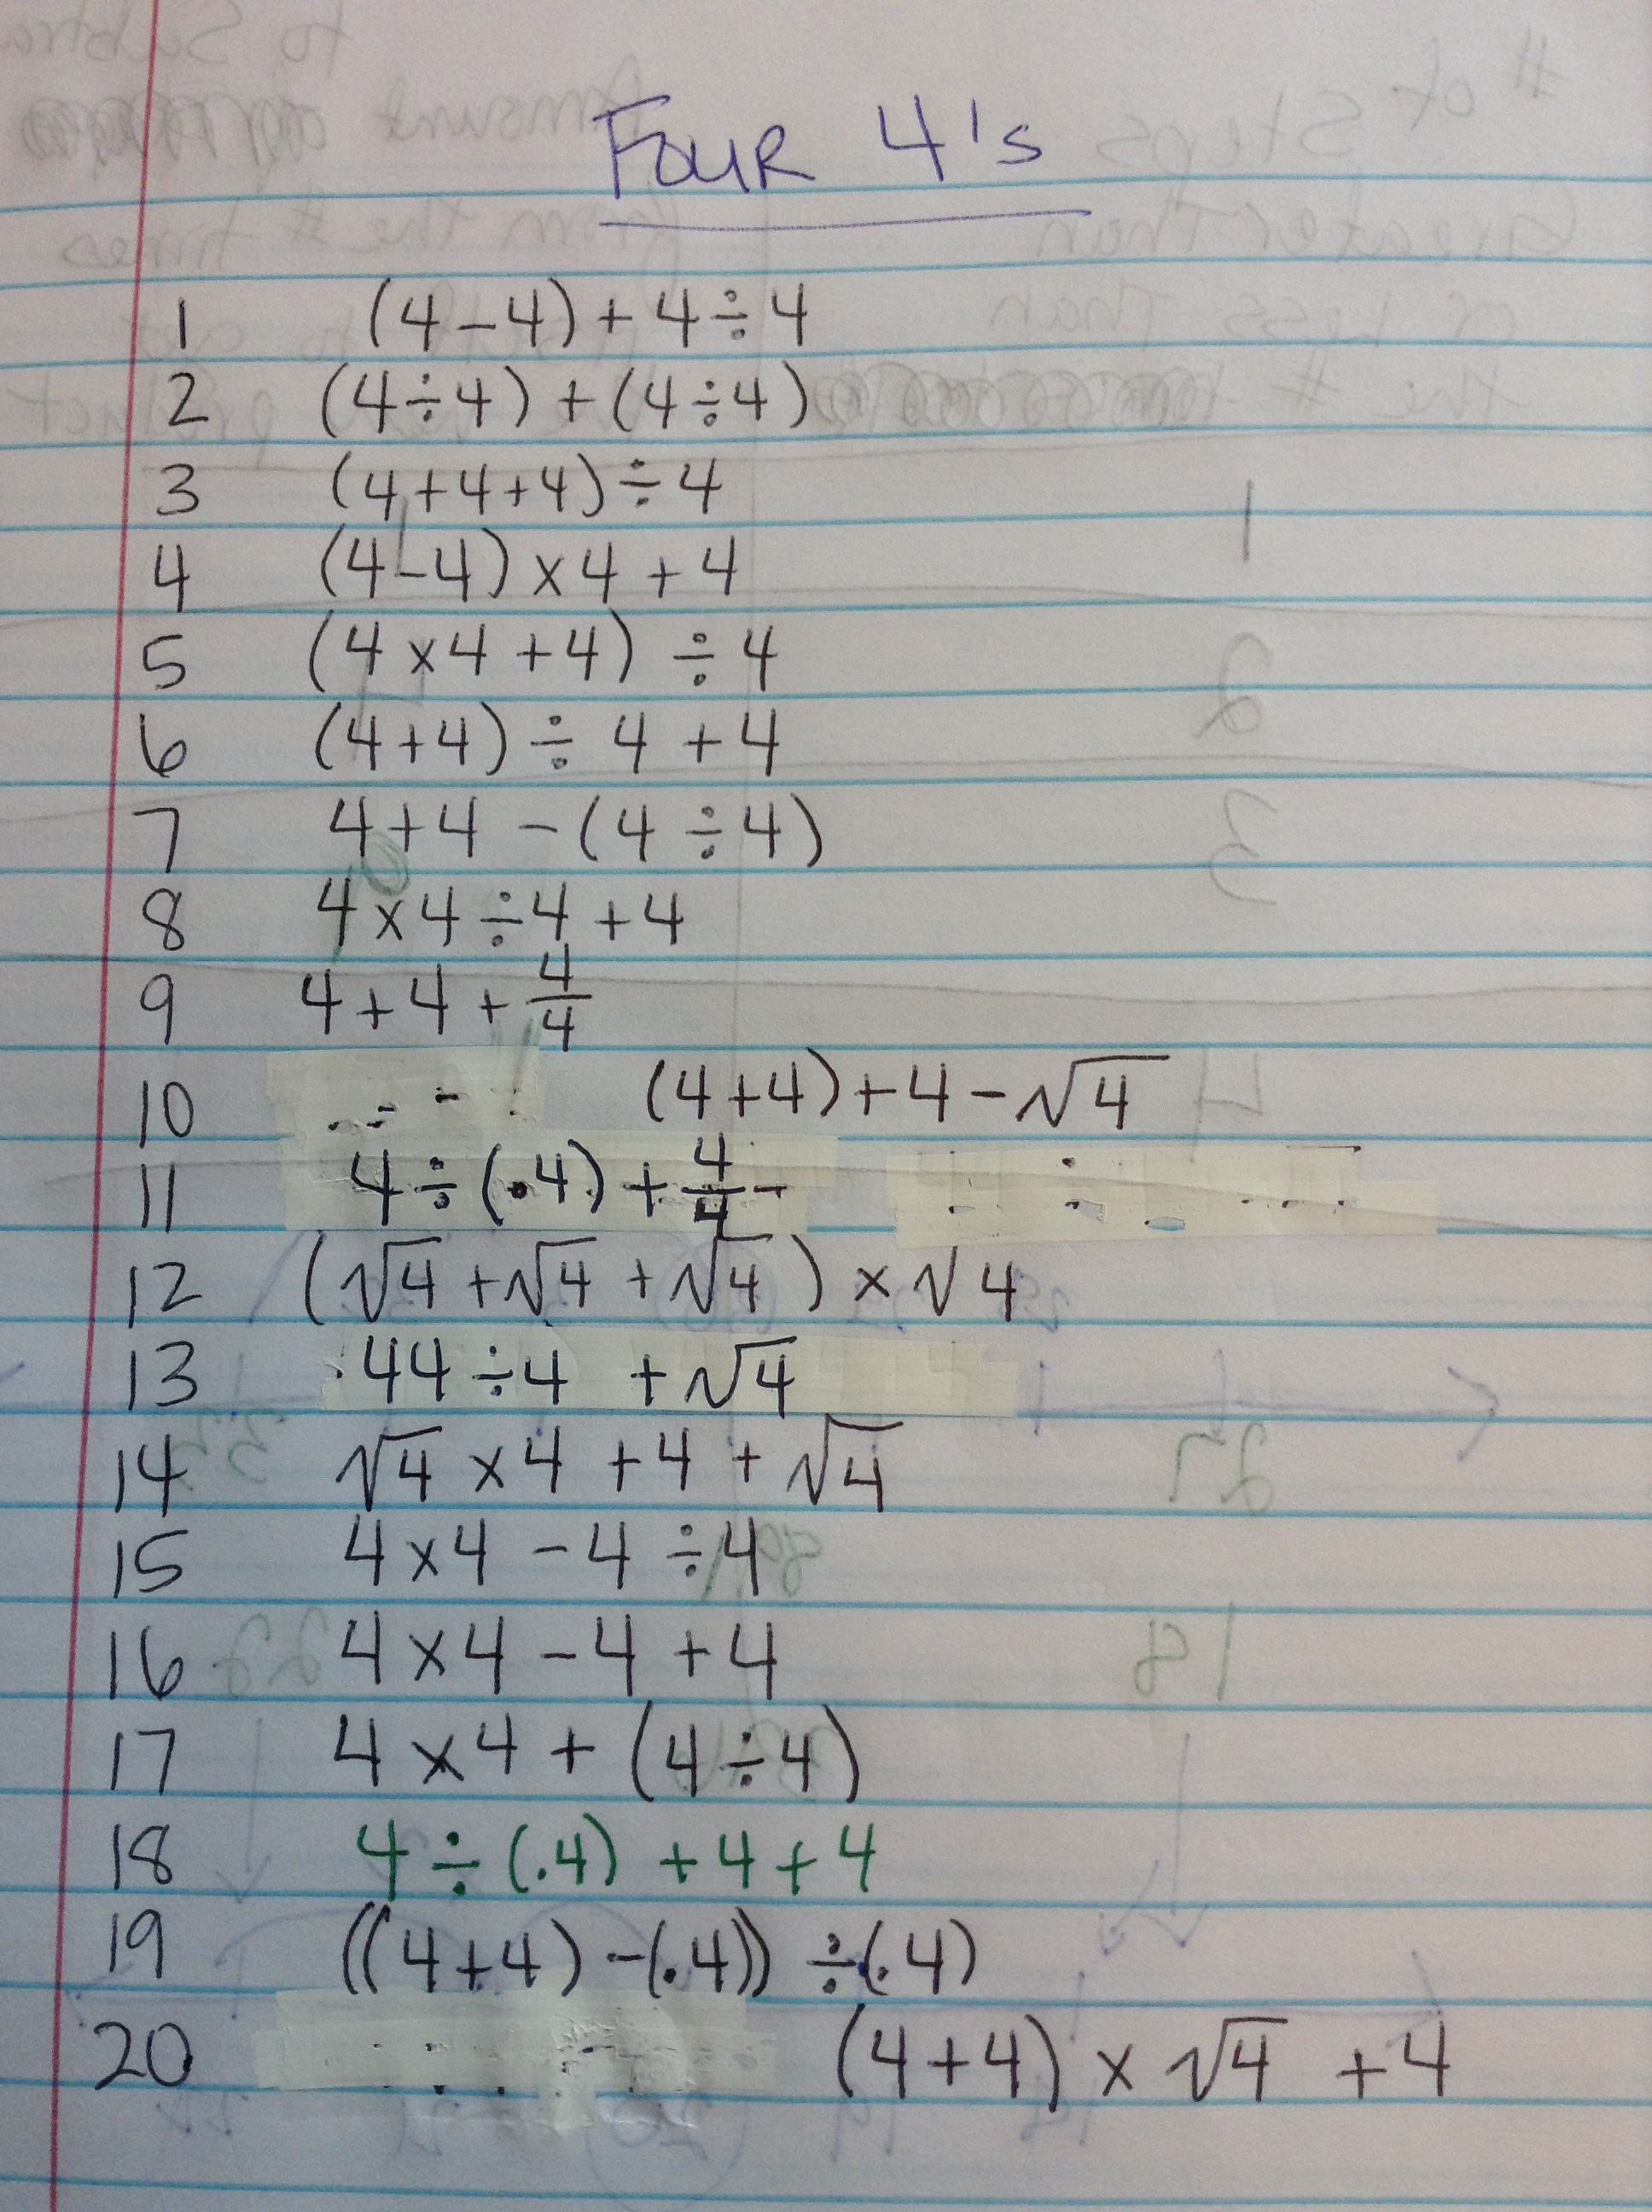 Four 4's
1 (4-4)+4÷4
2 (4÷4)+(4÷4)
3 (4+4+4)÷4
4 (4-4)×4+4
5 (4×4+4)÷4
6 (4+4)÷4+4
7 4+4-(4÷4)
8 4×4÷4+4
9 4+4+4/4
10 (4+4)+4-√4
11 4÷(.4)+4/4
12 (√4+√4+√4)×√4
13 44÷4+√4
14 √4×4+4+√4
15 4×4-4÷4
16 4×4-4+4
17 4×4+(4÷4)
18 4÷(.4)+4+4
19 ((4+4)-(.4))÷(.4)
20 (4+4)×√4+4